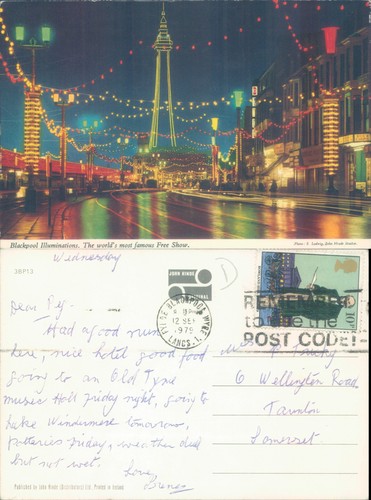 Blackpool Illuminations. The world's most famous Free Show.
3BP13
Wednesday
JOHN HINDE
ORIGINAL
FYLDE BLACKPOOL WYRE
12 SEP
1979
LANCS.
10P
REMEMBER
to use the
POST CODE!
Had good run
here, nice hotel good food
going to an Old Tyme
music Hall friday night, going to
Lake Windermere tomorrow,
potteries friday, weather dull
but not wet.
Love,
6 Wellington Road
Taunton
Somerset
Published by John Hinde (Distributors) Ltd. Printed in Ireland.